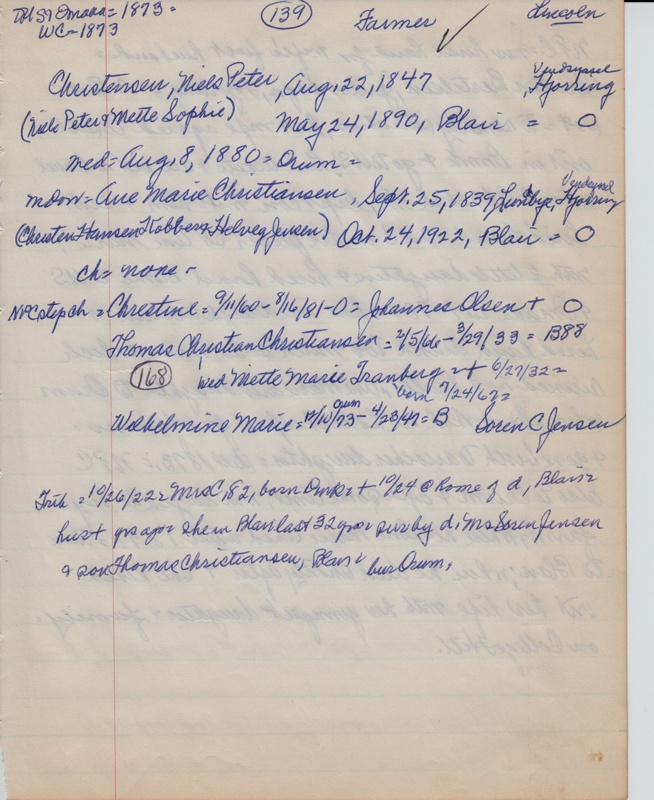 DK St Omaha = 1873 = (139) Farmer Lincoln
WC = 1873
Christensen, Niels Peter, Aug. 22, 1847 Vendsyssel, Hjorring
(Niels Peter & Mette Sophie) May 24, 1890, Blair = O
med = Aug. 8, 1880 = Orum =
mdow = Ane Marie Christiansen, Sept. 25, 1839, Lundbye, Vendsyssel Hjorring
(Christen Hansen Kobberø & Helveg Jensen) Oct. 24, 1922, Blair = O
ch = none -
NPC, step ch = Christine = 9/11/60 - 8/16/81 - O = Johannes Olsen + O
Thomas Christian Christiansen = 2/5/66 - 3/29/33 = B88
(168) wed Mette Marie Tranberg = + 6/27/32 =
born 7/24/67 =
Wilhelmine Marie = 12/10/73 Orum - 4/23/47 = B Soren C Jensen
Trib = 10/26/22 = Mrs C, 82, born Dmk = + 10/24 @ home of d, Blair =
hus + yrs ago = she in Blair last 32 yrs = sur by d, Mrs Soren Jensen
& son Thomas Christiansen, Blair = bur Orum,